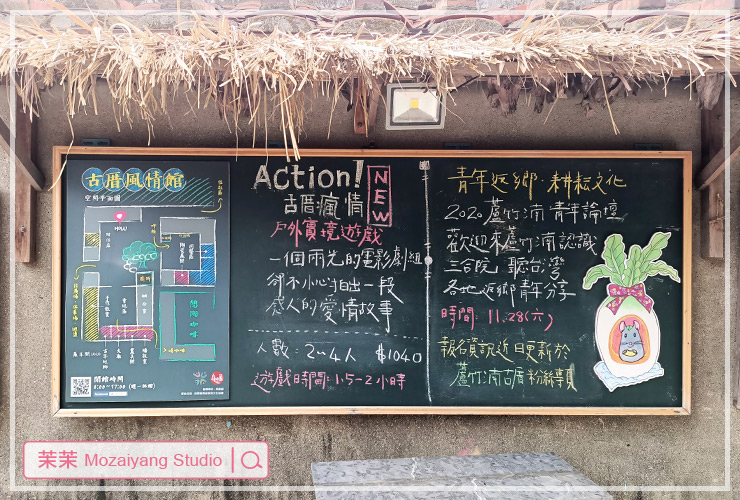 古厝風情館
空間平面圖
NOW
開館時間
9:00~17:00 (週一休館)
Action!
NEW
古厝瘋情
戶外實境遊戲
一個兩光的電影劇組
卻不小心拍出一段
感人的愛情故事
人數：2~4人 $1040
遊戲時間：1.5-2小時
青年返鄉·耕耘文化
2020蘆竹湳青年論壇
歡迎來蘆竹湳認識
三合院 聽台灣
各地返鄉青年分享
時間：11.28(六)
報名資訊近日更新於
蘆竹湳古厝粉絲專頁
茉茉 Mozaiyang Studio